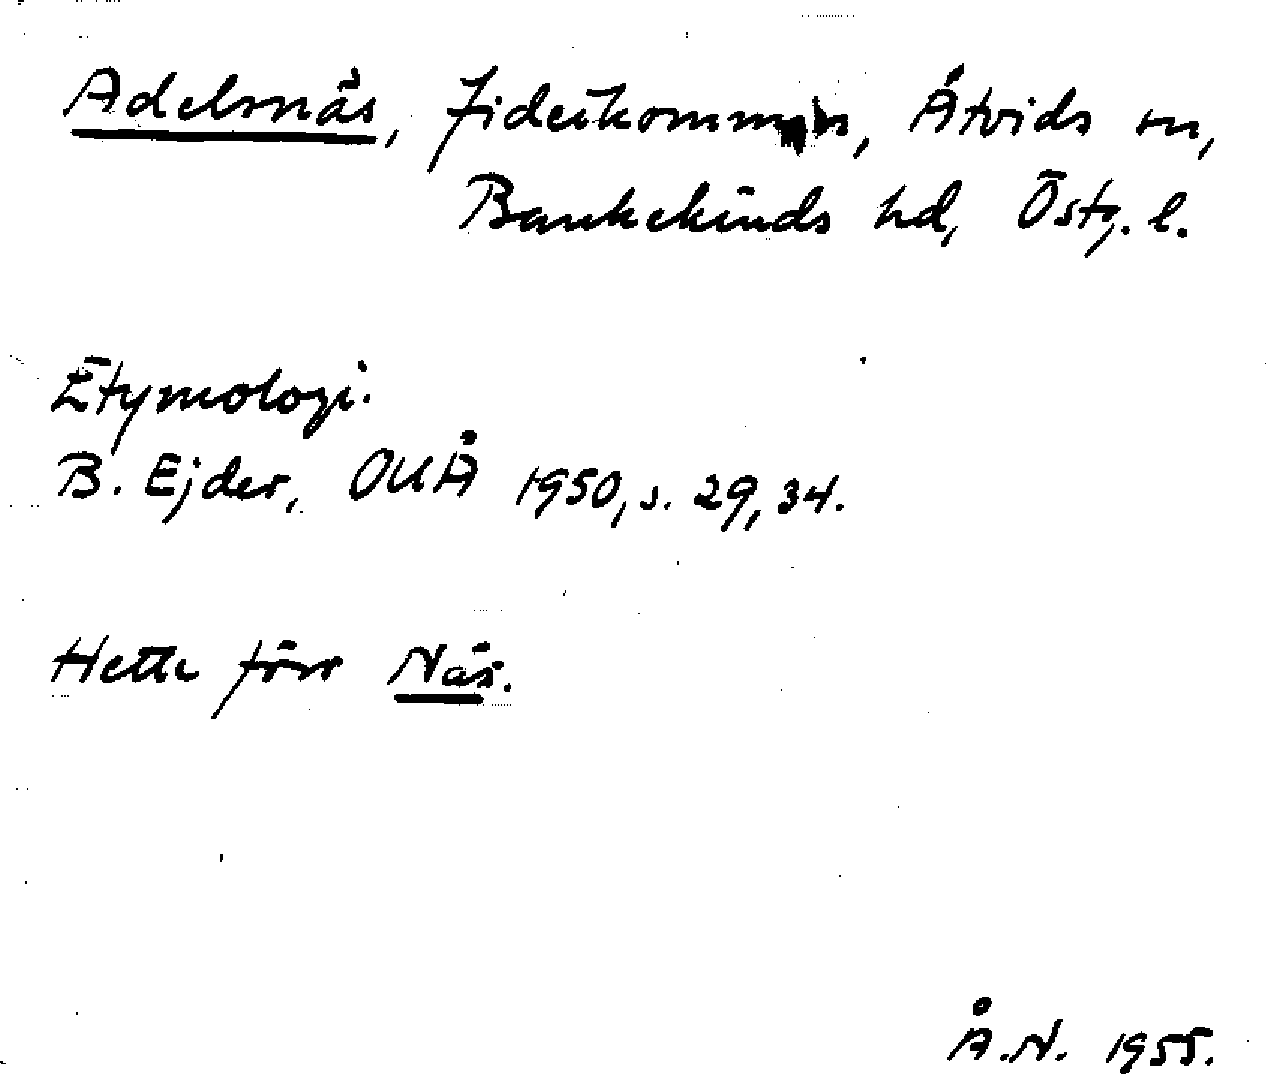 Adelsnäs, fideikommiss, Åtvids sn,
Bankekinds hd, Östg. l.
Etymologi.
B. Ejder, OUÅ 1950, s. 29, 34.
Hette förr Näs.
Å.N. 1955.